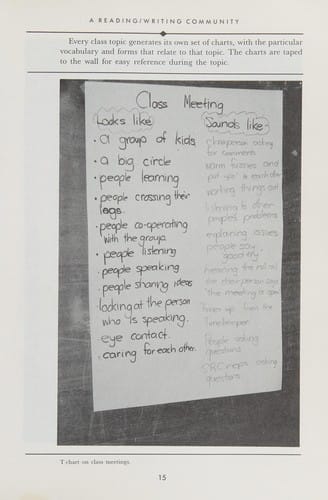 A READING/WRITING COMMUNITY
Every class topic generates its own set of charts, with the particular
vocabulary and forms that relate to that topic. The charts are taped
to the wall for easy reference during the topic.
Class Meeting
Looks like
• a group of kids
• a big circle
• people learning
• people crossing their
legs.
• people co-operating
with the group.
• people listening
• people speaking
• people sharing ideas
• looking at the person
who is speaking.
eye contact.
• caring for each other.
Sounds like
Chairperson asking
for comments
warm fuzzies and
working things out
listening to other
peoples problems
explaining issues
people say
good try
Timekeeper
People asking
questions
SRC reps asking
questions
T chart on class meetings.
15